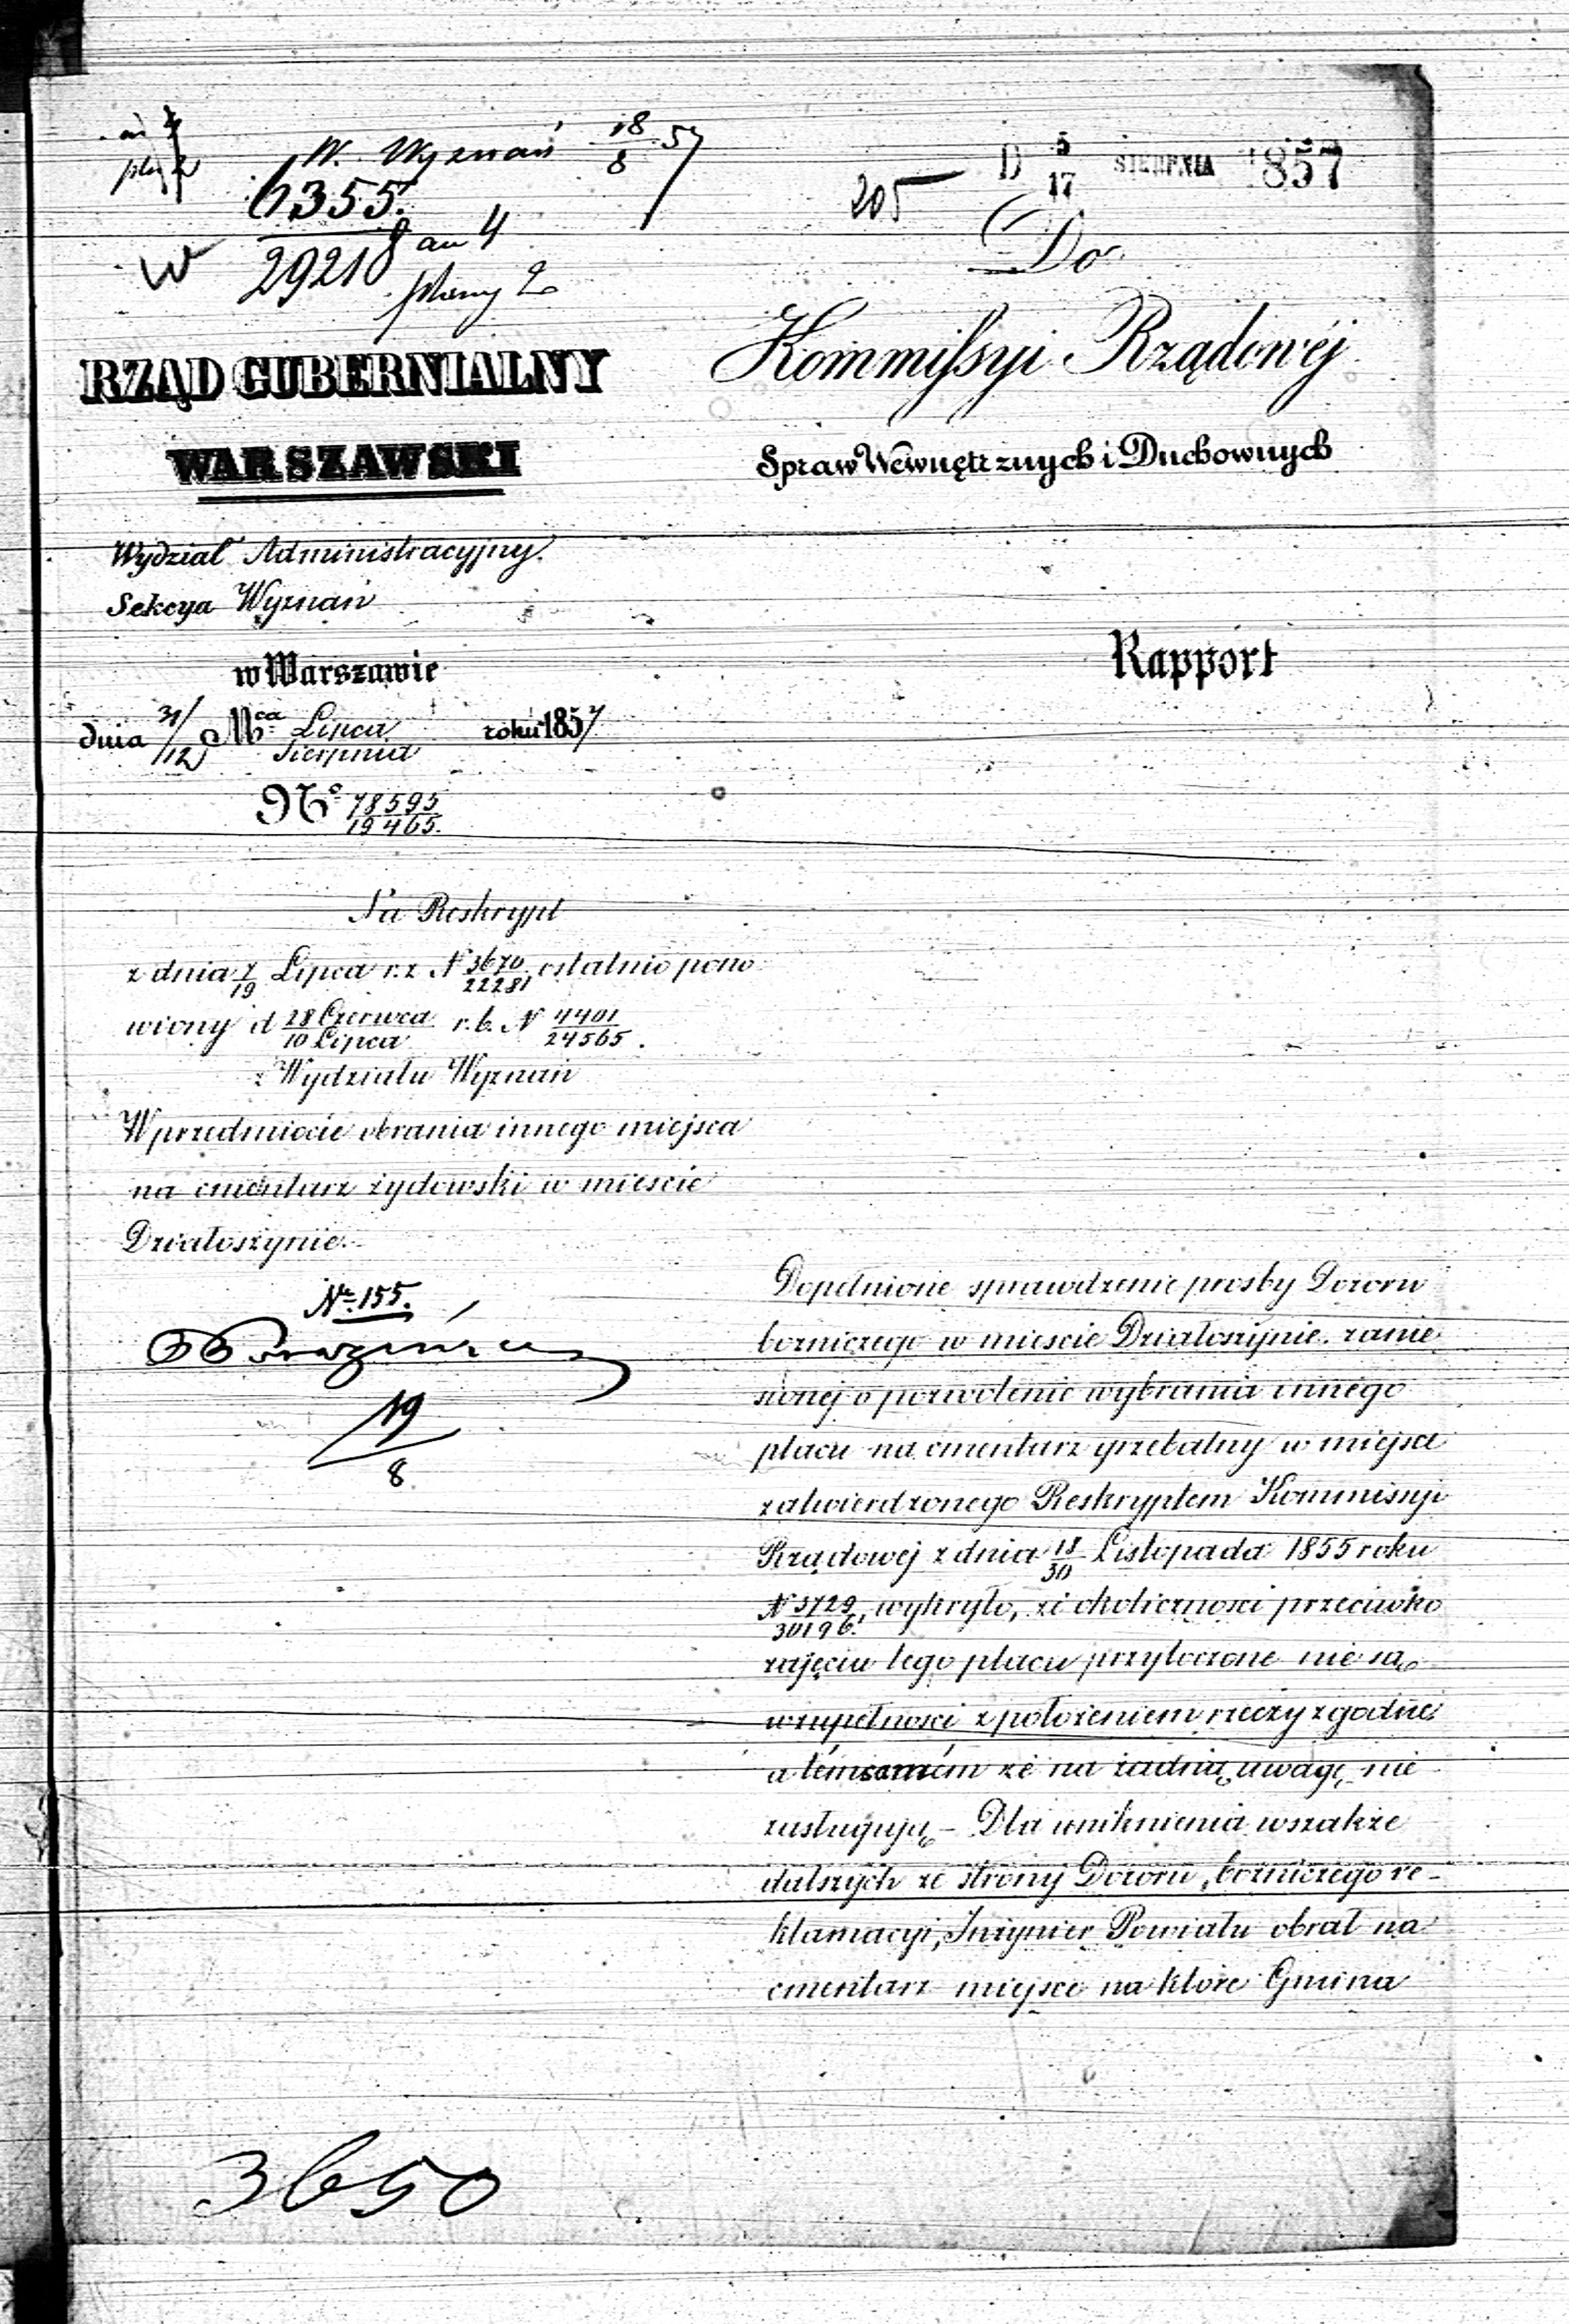 W. Wyznań 18/8 57
6355.
29218 an 4
plany 2
205
D 5/17 SIERPNIA 1857
Do
Kommissyi Rządowéj
Spraw Wewnętrznych i Duchownych
RZĄD GUBERNIALNY
WARSZAWSKI
Wydział Administracyjny.
Sekcya Wyznań
w Warszawie
dnia 31/12 Mca Lipca/Sierpnia roku 1857
No 78595/19465.
Rapport
Na Reskrypt
z dnia 7/19 Lipca r. z. N 3670/22281 ostatnio pono
wiony d 28 Czerwca/10 Lipca r. b. N 4401/24565.
z Wydziału Wyznań
W przedmiocie obrania innego miejsca
na cmentarz żydowski w mieście
Działoszynie.
No. 155.
19/8
Dopełnione sprawdzenie prośby Dozoru
bożniczego w mieście Działoszynie zanie
sionej o pozwolenie wybrania innego
placu na cmentarz grzebalny w miejsce
zatwierdzonego Reskryptem Kommissyi
Rządowej z dnia 18/30 Listopada 1855 roku
N 3729/30196. wykryło, że okoliczności przeciwko
zajęciu tego placu przytoczone nie są
w zupełności z położeniem rzeczy zgodne
a témsamém że na żadną uwagę nie
zasługują – Dla uniknienia wszakże
dalszych ze strony Dozoru bożniczego re-
klamacyi, Inżynier Powiatu obrał na
cmentarz miejsce na które Gmina
3650